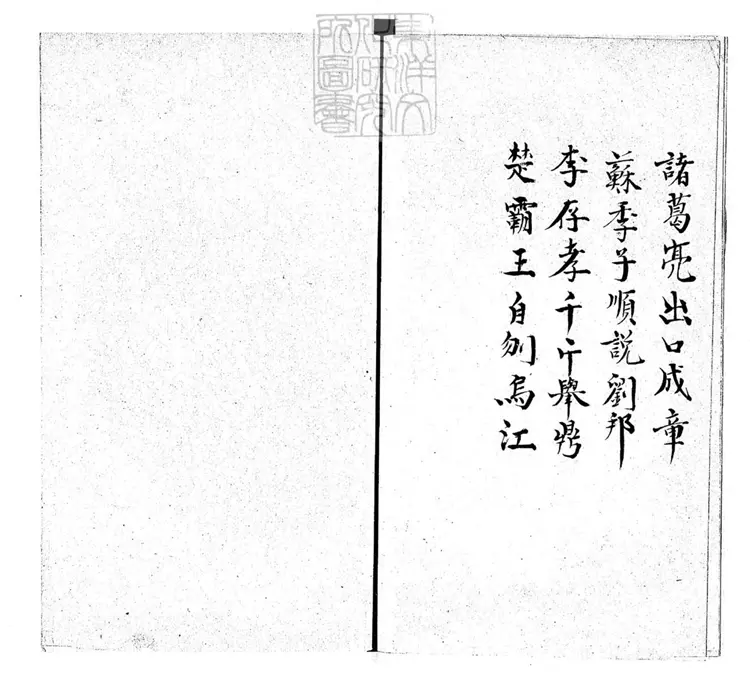 東洋文
化研究
所圖書
諸葛亮出口成章
蘇季子順説劉邦
李存孝千斤舉鼎
楚霸王自刎烏江